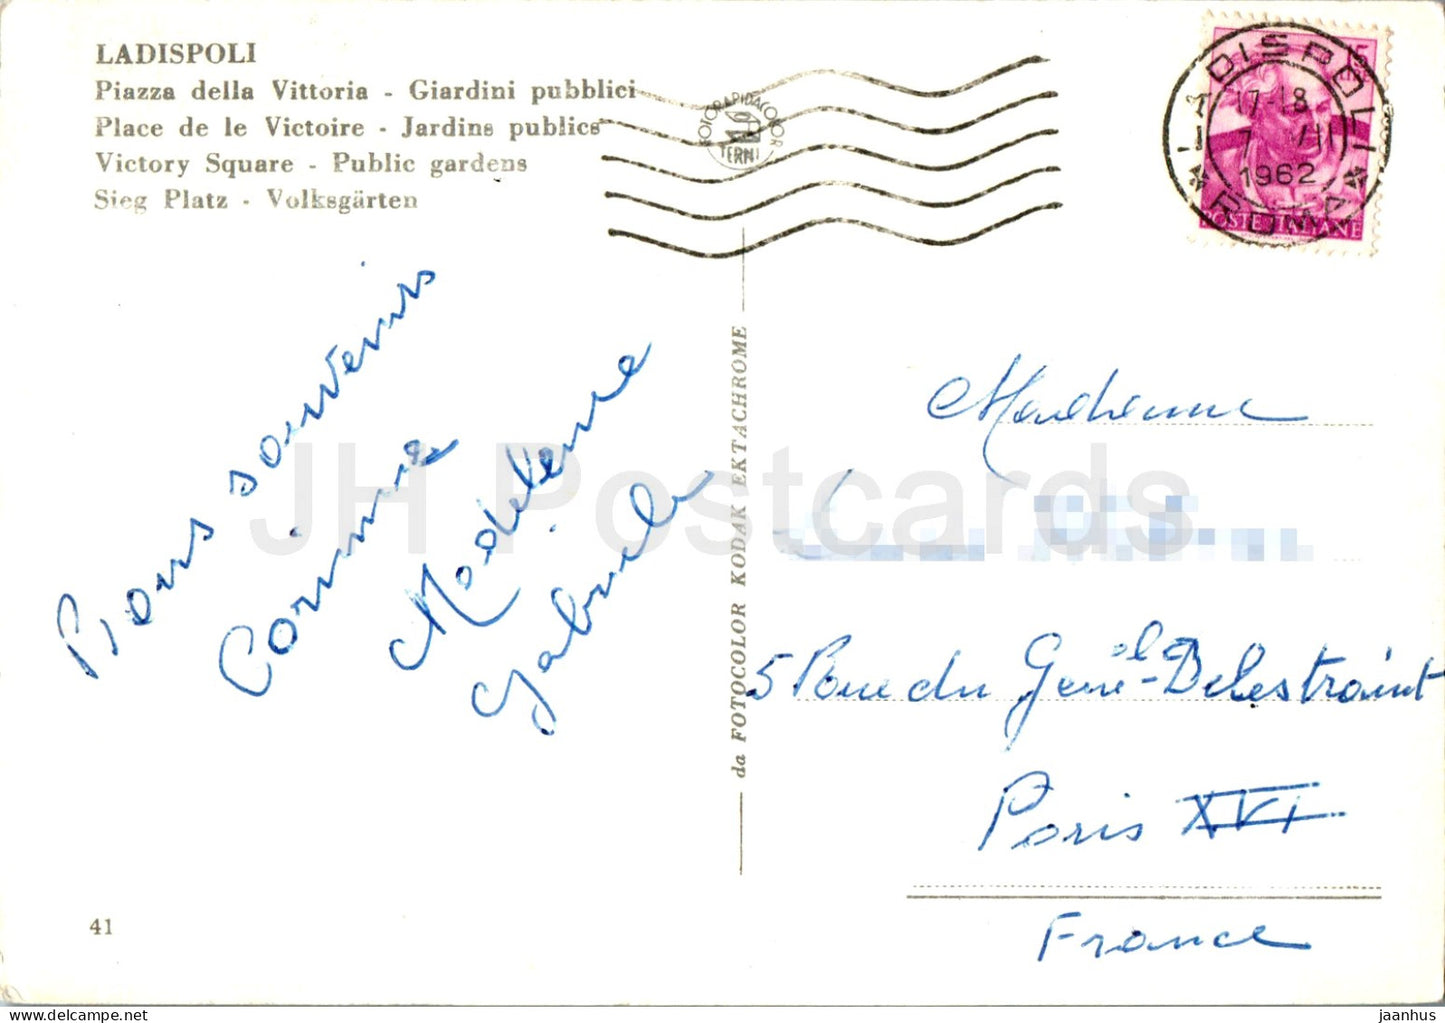 LADISPOLI
Piazza della Vittoria - Giardini pubblici
Place de le Victoire - Jardins publics
Victory Square - Public gardens
Sieg Platz - Volksgärten
FOTORAPIDACOLOR
TERNI
LADISPOLI
17-18
7 VII
1962
ROMA
15
POSTE ITALIANE
Bons souvenirs
Corinne
Madeleine
Gabrielle
da FOTOCOLOR KODAK EKTACHROME
5 Rue du Général-Delestraint
Paris XVI
France
41
JH Postcards
hipstamp.com/store/jaanhus
jaanhus